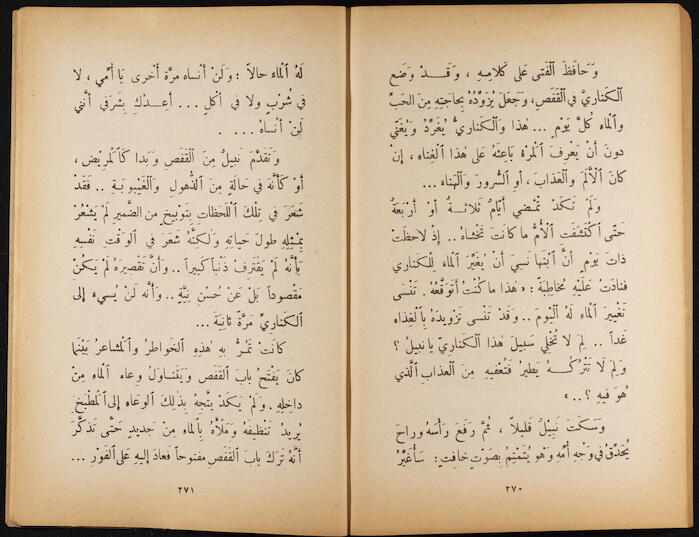 وَحَافَظَ ٱلْفَتى عَلى كَلامِهِ ، وَقَــدْ وَضَع
ٱلْكَنارِيَّ في ٱلْقَفَصِ، وَجَعَلَ يُزَوِّدُهُ بِحَاجَتِهِ مِنَ الحَبِّ
وٱلْماءِ كُلَّ يَوْمٍ ... هٰذا وَٱلْكَنارِيُّ يُغَرِّدُ وَيُغَنِّي
دونَ أَنْ يَعْرِفَ ٱلْمرْءُ بَاعِثَهُ عَلى هٰذا ٱلْغِناءِ، إِنْ
كانَ ٱلْأَلَمَ وٱلْعَذابَ، أَوِ ٱلسُّرورَ وَٱلْهَناءَ ...
وَلَمْ تَكَدْ تَمْضي أَيّامٌ ثَلاثَــةٌ أَوْ أَرْبَعَةٌ
حَتّى ٱكْتَشَفَتِ ٱلْأُمُّ ما كانَتْ تَخْشاهُ .. إِذْ لاحَظَتْ
ذاتَ يَوْمٍ أَنَّ ٱبْنَها نَسِيَ أَنْ يُغَيِّرَ ٱلْماءَ لِلْكَناري
فَنادَتْ عَلَيْهِ مُخاطِبَةً : « هٰذا ما كُنْتُ أَتَوَقَّعُهُ . تَنْسى
تَغْييرَ ٱلْماءِ لَهُ ٱلْيَوْمَ .. وَقَدْ تَنْسى تَزْويدَهُ بِٱلْغِذاءِ
غَداً .. لِمَ لا تُخْلي سَبيلَ هٰذا ٱلْكَنارِيِّ يا نَبيلُ ؟
وَلِمَ لا تَتْرُكُــهُ يَطيرُ فَتُعْفيهِ مِنَ ٱلْعَذابِ ٱلَّذي
هُوَ فيهِ ؟ .. »
وَسَكَتَ نَبيلٌ قَليلاً ، ثُمَّ رَفَعَ رَأْسَهُ وراحَ
يُحَدِّقُ في وَجْهِ أُمِّهِ وَهْوَ يُتَمْتِمُ بِصَوْتٍ خافِتٍ : سَأُغَيِّرُ
٢٧٠
لَهُ ٱلْماءَ حالاً : وَلَنْ أَنْساه مرَّة أُخْرى يَا أُمِّي ، لا
في شُرْبٍ ولا في أكْلٍ ... أعِـدُكِ بِشَرَفي أَنَّني
لَنْ أَنْساهُ ... .
وَتَقَدَّمَ نَبيلٌ مِنَ ٱلْقَفَصِ وَبَدا كَٱلْمَريْضِ ،
أَوْ كَأَنَّهُ في حَالَةٍ مِنَ ٱلذُّهُولِ وَٱلْغَيْبوبَةِ .. فَقَدْ
شَعَرَ في تِلْكَ ٱللَّحَظاتِ بِتَوْبيخٍ مِنَ الضَّميرِ لَمْ يَشْعُرْ
بِمِثْلِهِ طولَ حَياتِهِ وَلٰكِنَّهُ شَعَرَ في ٱلْوَقْتِ نَفْسِهِ
بِأَنَّهُ لَمْ يَقْتَرِفْ ذَنْباً كَبيراً .. وَأَنَّ تَقْصيرَهُ لَمْ يَكُنْ
مَقْصوداً بَلْ عَنْ حُسْنِ نِيَّةٍ .. وَأَنَّه لَنْ يُسيءَ إِلى
ٱلْكَنارِيِّ مَرَّةً ثانِيَةً ...
كانَتْ تَمُرُّ بِهِ هٰذِهِ ٱلْخَواطِرُ وٱلْمشاعرُ بَيْنَما
كانَ يَفْتَحُ بابَ ٱلْقَفَصِ وَيَتَناوَلُ وِعاءَ ٱلْماءِ مِنْ
داخِلِهِ . وَلَمْ يَكَدْ يتَّجِهُ بِذٰلِكَ ٱلْوِعَاءِ إِلى ٱلْمَطْبَخِ
يُريدُ تَنْظيفَهُ وَمَلْأَهُ بِٱلْماءِ مِنْ جَديدٍ حَتَّى تَذَكَّرَ
أَنَّهُ تَرَكَ بابَ ٱلْقَفَصِ مَفْتوحاً فَعادَ إِليهِ عَلى ٱلْفَوْرِ ...
٢٧١